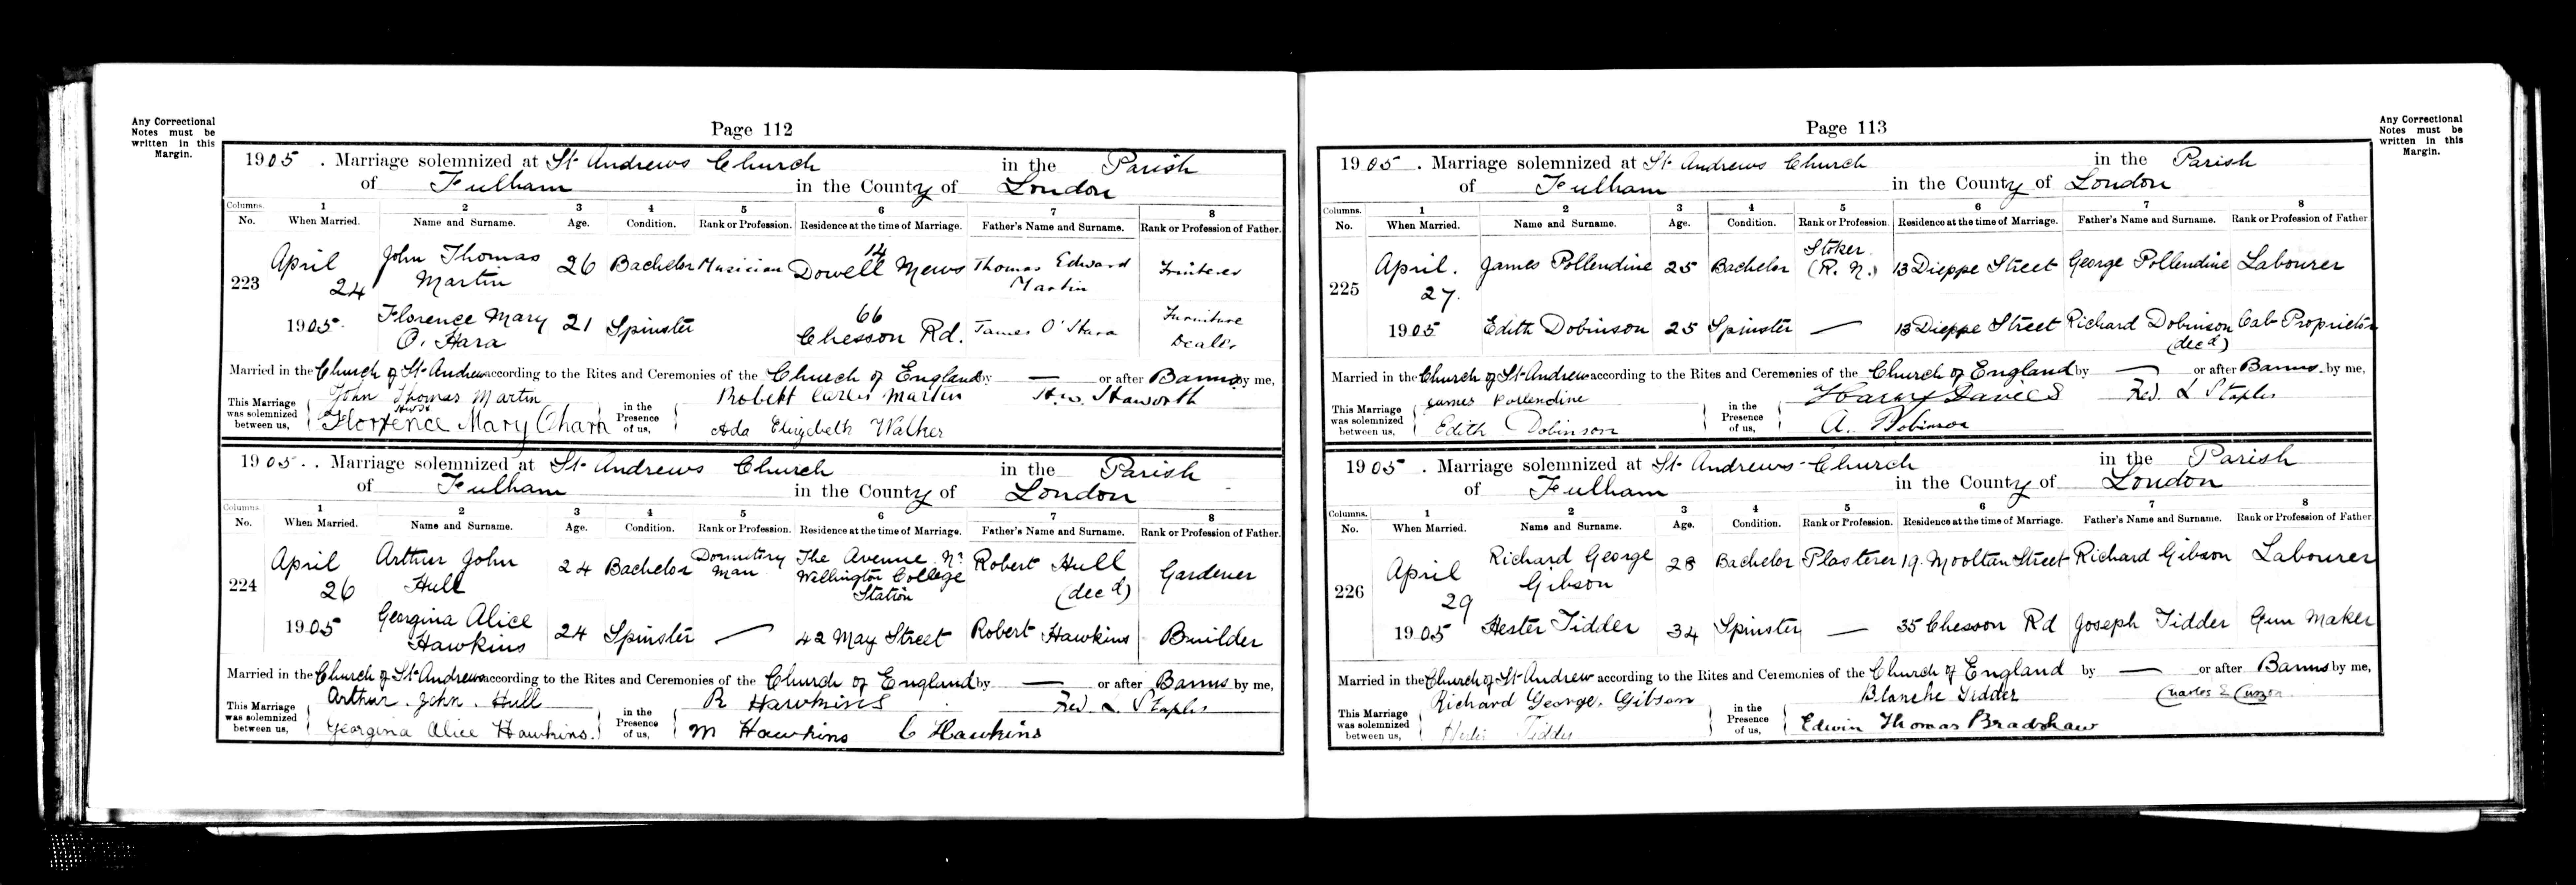 Any Correctional
Notes must be
written in this
Margin.
Page 112
1905 . Marriage solemnized at St Andrews Church in the Parish
of Fulham in the County of London
Columns. 1 2 3 4 5 6 7 8
No. When Married. Name and Surname. Age. Condition. Rank or Profession. Residence at the time of Marriage. Father's Name and Surname. Rank or Profession of Father.
223 April 24 1905 John Thomas Martin 26 Bachelor Musician 14 Dowell Mews Thomas Edward Martin
Florence Mary O'Hara 21 Spinster 66 Chesson Rd. James O'Hara Furniture Dealer
Married in the Church of St Andrew according to the Rites and Ceremonies of the Church of England by — or after Banns by me,
This Marriage was solemnized between us, John Thomas Martin in the Presence of us, Robert Martin H. W. Haworth
Florence Mary Ohara Ada Elizabeth Walker
1905 . . Marriage solemnized at St Andrews Church in the Parish
of Fulham in the County of London
Columns 1 2 3 4 5 6 7 8
No. When Married. Name and Surname. Age. Condition. Rank or Profession. Residence at the time of Marriage. Father's Name and Surname. Rank or Profession of Father.
224 April 26 1905 Arthur John Hull 24 Bachelor Dormitory Man The Avenue Nr Wellington College Station Robert Hull (decd) Gardener
Georgina Alice Hawkins 24 Spinster — 42 May Street Robert Hawkins Builder
Married in the Church of St Andrew according to the Rites and Ceremonies of the Church of England by — or after Banns by me,
This Marriage was solemnized between us, Arthur John Hull in the Presence of us, R Hawkins Fred. L. Staples
Georgina Alice Hawkins. M Hawkins C Hawkins
Any Correctional
Notes must be
written in this
Margin.
Page 113
1905 . Marriage solemnized at St Andrews Church in the Parish
of Fulham in the County of London
Columns. 1 2 3 4 5 6 7 8
No. When Married. Name and Surname. Age. Condition. Rank or Profession. Residence at the time of Marriage. Father's Name and Surname. Rank or Profession of Father
225 April. 27. 1905 James Pollendine 25 Bachelor Stoker (R. N.) 13 Dieppe Street George Pollendine Labourer
Edith Dobinson 25 Spinster — 13 Dieppe Street Richard Dobinson (decd) Cab Proprietor
Married in the Church of St Andrew according to the Rites and Ceremonies of the Church of England by — or after Banns by me,
This Marriage was solemnized between us, James Pollendine in the Presence of us, Harry Davies Fred. L Staples
Edith Dobinson A. Dobinson
1905 . Marriage solemnized at St Andrews Church in the Parish
of Fulham in the County of London
Columns. 1 2 3 4 5 6 7 8
No. When Married. Name and Surname. Age. Condition. Rank or Profession. Residence at the time of Marriage. Father's Name and Surname. Rank or Profession of Father.
226 April 29 1905 Richard George Gibson 28 Bachelor Plasterer 19. Mooltan Street Richard Gibson Labourer
Hester Tidder 34 Spinster — 35 Chesson Rd Joseph Tidder Gun Maker
Married in the Church of St Andrew according to the Rites and Ceremonies of the Church of England by — or after Banns by me,
This Marriage was solemnized between us, Richard George. Gibson in the Presence of us, Blanche Tidder Charles E Curzon
Tidder Edwin Thomas Bradshaw